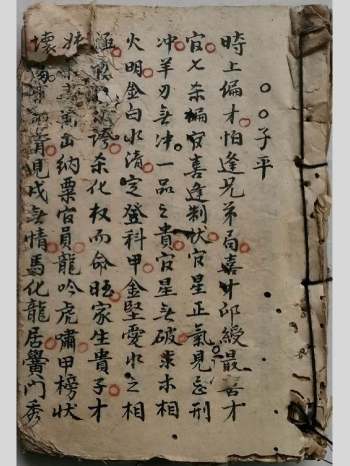 子平
時上偏才怕逢兄弟局喜 印綬最吉才
官七杀偏官喜逢制伏官星正氣見忌刑
冲羊刃無冲一品之貴官星無破 木相
火明金白水清定登科甲金堅 水之相
誇杀化权而命旺家生貴子才
納粟官員龍吟虎嘯甲榜状
壊 見戌無情馬化龍居黌门秀